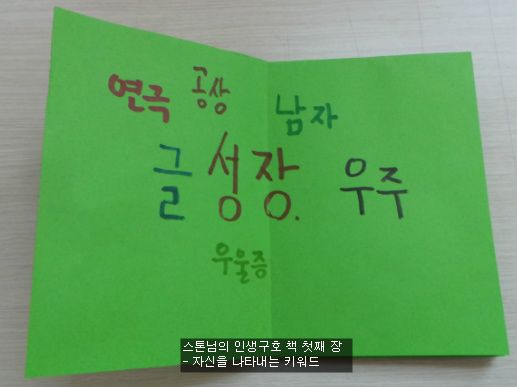 연극 공상
남자
글 성장. 우주
우울증
스톤님의 인생구호 책 첫째 장
- 자신을 나타내는 키워드